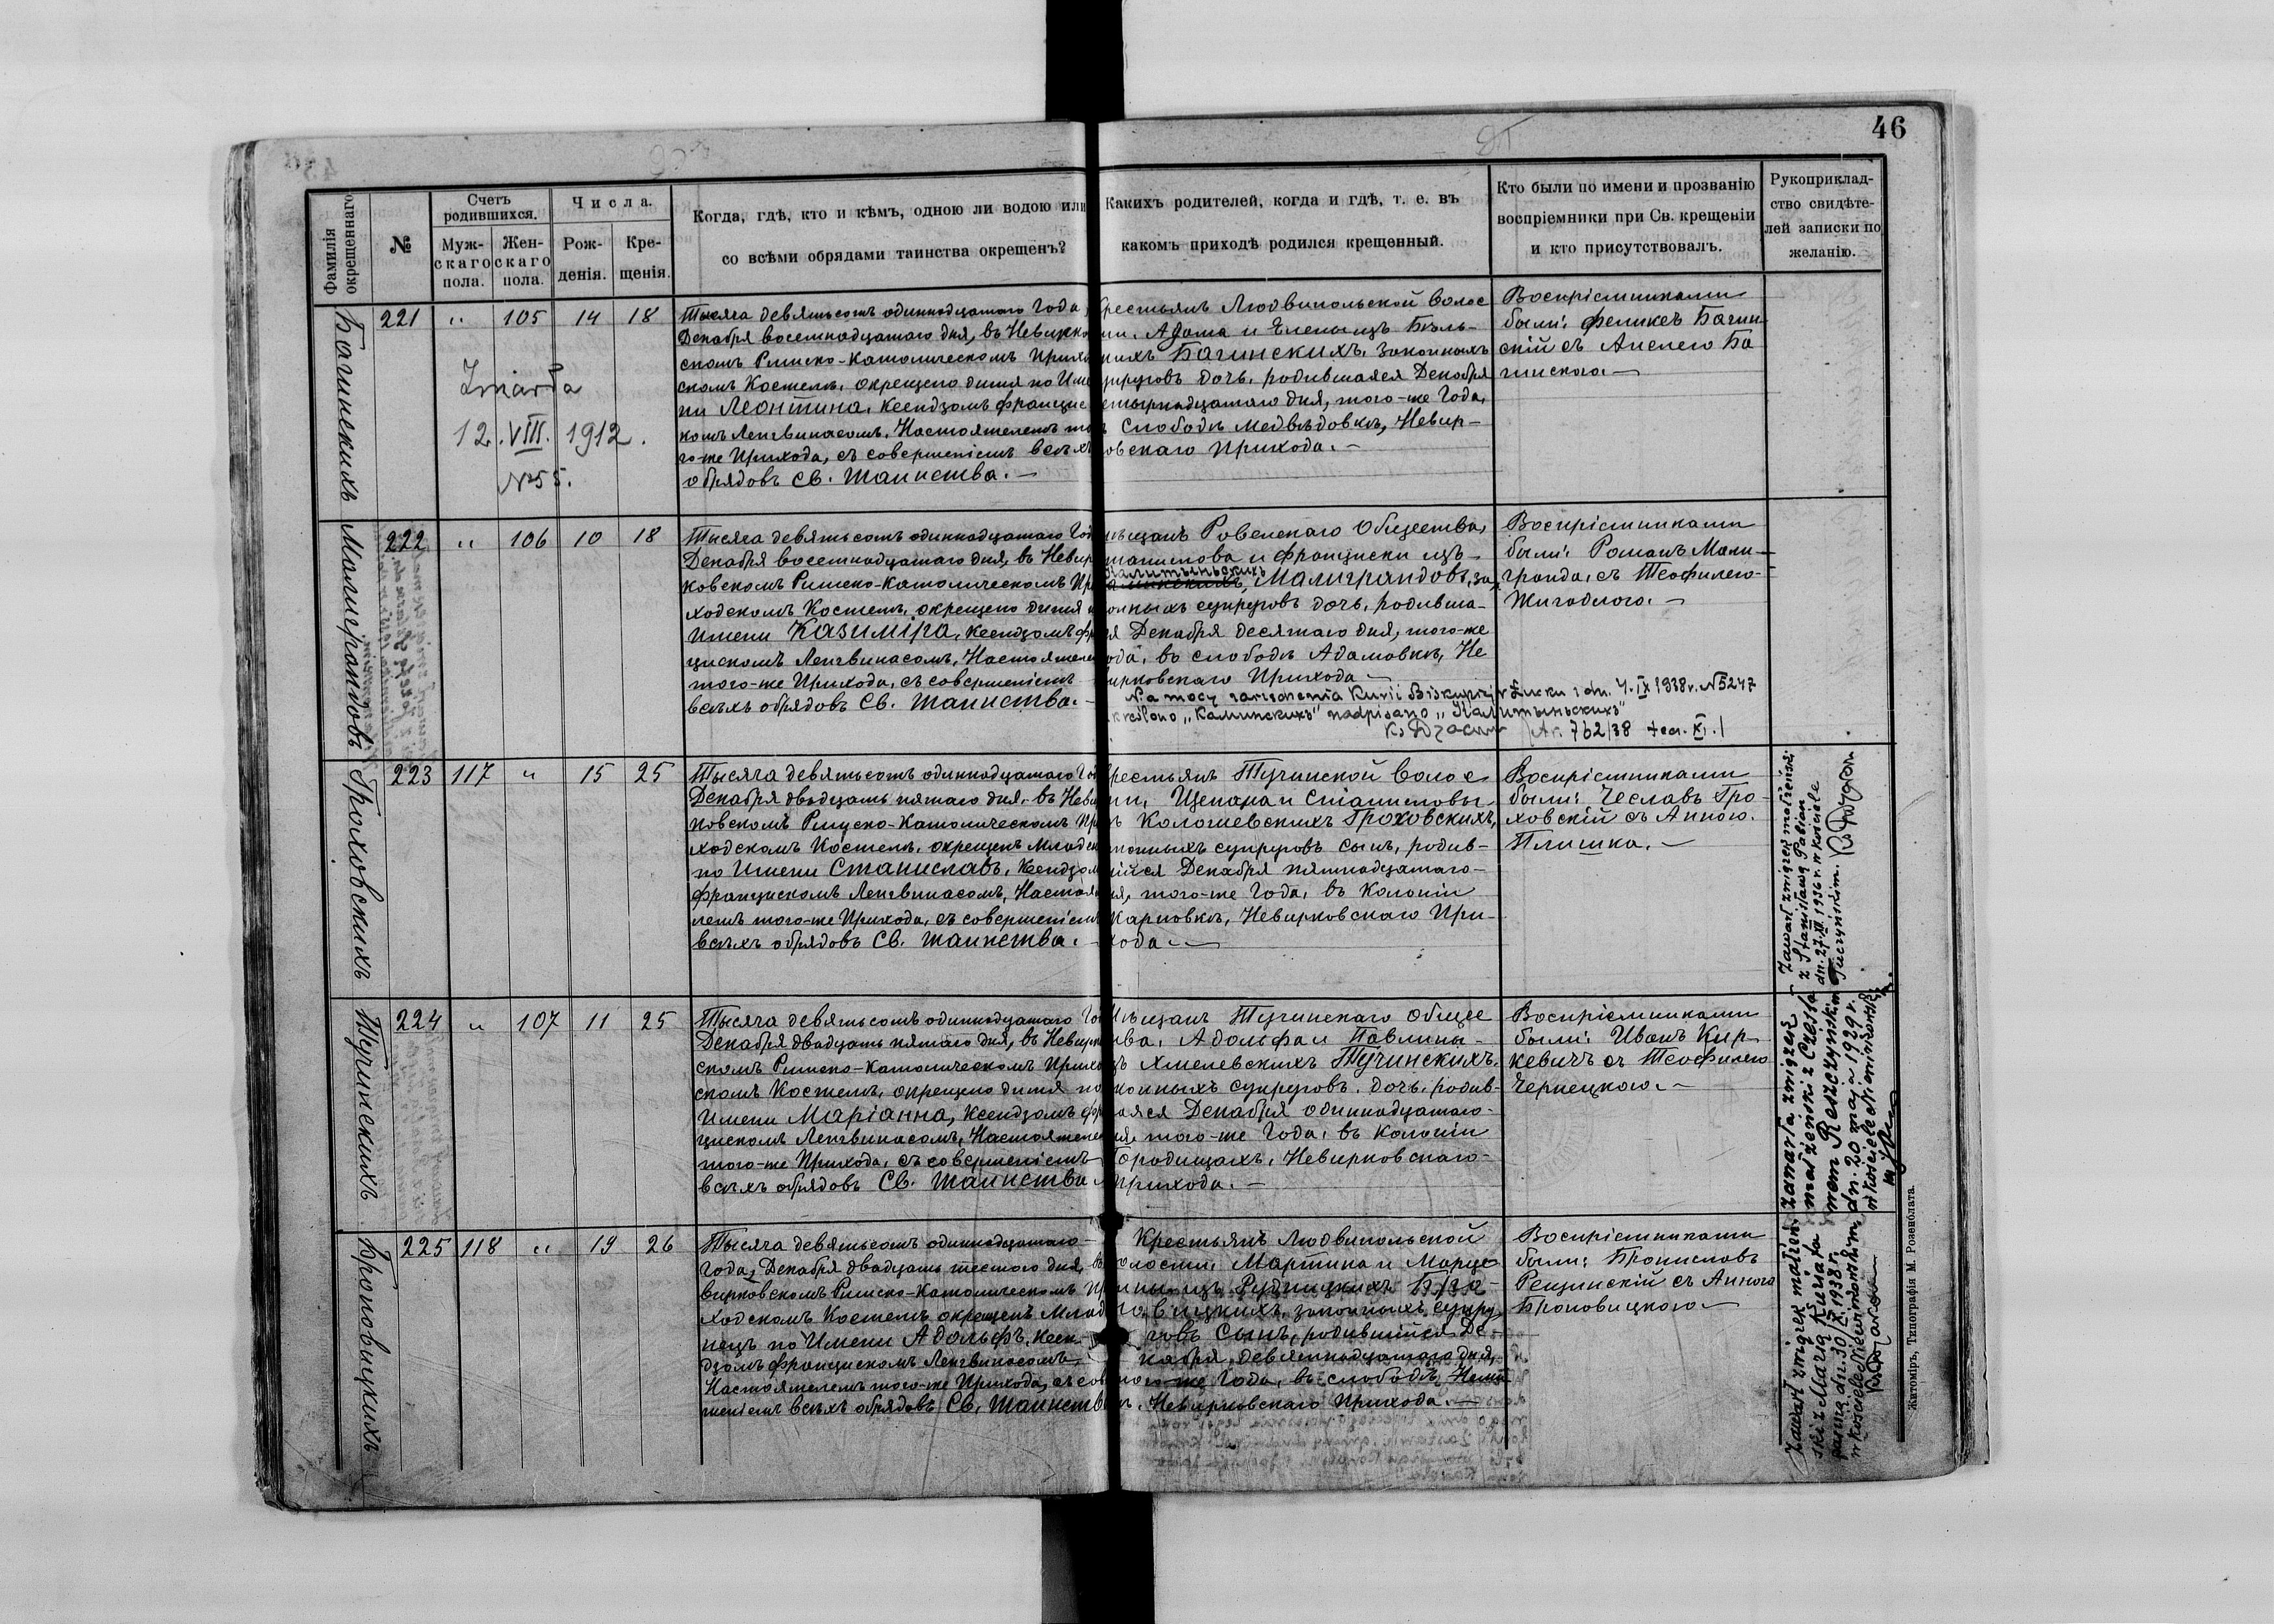 46
Фамилія окрещеннаго.
№
Счетъ родившихся.
Муж-скаго пола.
Жен-скаго пола.
Числа.
Рож-денія.
Кре-щенія.
Когда, гдѣ, кто и кѣмъ, одною ли водою или
со всѣми обрядами таинства окрещенъ?
Какихъ родителей, когда и гдѣ, т. е. въ
какомъ приходѣ родился крещенный.
Кто были по имени и прозванію
воспріемники при Св. крещеніи
и кто присутствовалъ.
Рукоприклад-
ство свидѣте-
лей записки по
желанію.
Багинскихъ
221 " 105 14 18
Zmarła
12.VIII.1912.
№55.
Тысяча девятьсотъ одиннадцатаго Года,
Декабря восемнадцатаго дня, въ Невирко
скомъ Римско-Католическомъ Прихо
скомъ Костелѣ, окрещено дитя по Име
ни Леонтина, Ксендзомъ Францис
комъ Ленгвинасомъ, Настоятелемъ то
го-же Прихода, съ совершеніемъ всѣхъ
обрядовъ Св. Таинства.—
Крестьянъ Людвипольской волос
ти, Адама и Елены изъ Бѣль-
скихъ Багинскихъ, законныхъ
супруговъ дочь, родившаяся Декабря
четырнадцатаго дня, того-же Года,
въ Слободѣ Медвѣдовкѣ, Невир-
ковскаго Прихода.—
Воспріемниками
были: Феликсъ Багин-
скій съ Анелею Ба
гинскою.—
Малиграндовъ
222 " 106 10 18
Тысяча девятьсотъ одиннадцатаго Год
Декабря восемнадцатаго дня, въ Невир
ковскомъ Римско-Католическомъ При
ходскомъ Костелѣ, окрещено дитя п
Имени Казиміра, Ксендзомъ Фра
цискомъ Ленгвинасомъ, Настоятеле
того-же Прихода, съ совершеніемъ
всѣхъ обрядовъ Св. Таинства.—
Мѣщанъ Ровенскаго Общества,
Станислова и Франциски изъ
Калитыньскихъ
Малиграндовъ, за
конныхъ супруговъ дочь, родивша-
яся Декабря десятаго дня, того-же
Года, въ слободѣ Адамовкѣ, Не
вирковскаго Прихода—
Na mocy zarządzenia Kurii Biskupiej w Łucku z dn. 7.IX 1938 r. № 5247
skreślono „Калинскихъ" nadpisano „Калитыньскихъ"
762/38
Воспріемниками
были: Романъ Мали-
гранда, съ Теофилею
Жигадлою.—
Гроховскихъ
223 117 " 15 25
Тысяча девятьсотъ одиннадцатаго Год
Декабря двадцать пятаго дня, въ Невир
ковскомъ Римско-Католическомъ При
ходскомъ Костелѣ, окрещенъ Младен
по Имени Станиславъ, Ксендзом
Францискомъ Ленгвинасомъ, Настоя
лемъ того-же Прихода, съ совершеніем
всѣхъ обрядовъ Св. Таинства.—
Крестьянъ Тучинской волос
ти, Щепана и Станиславы
изъ Калашевскихъ Гроховскихъ,
законныхъ супруговъ сынъ, родив-
шійся Декабря пятнадцатаго
дня, того-же Года, въ Колоніи
Карловкѣ, Невирковскаго При-
хода.—
Воспріемниками
были: Чеславъ Гро-
ховскій съ Анною
Плишка.—
Zawarł związek małżeński
z Stanisławą Pabian
dn. 27.XI.1936 r. w kościele
Tuczyńskim.
Тучинскихъ
224 " 107 11 25
Тысяча девятьсотъ одиннадцатаго Го
Декабря двадцать пятаго дня, въ Невирко
скомъ Римско-Католическомъ Приход
скомъ Костелѣ, окрещено дитя по
Имени Маріанна, Ксендзомъ Фра
цискомъ Ленгвинасомъ, Настоятеле
того-же Прихода, съ совершеніемъ
всѣхъ обрядовъ Св. Таинства
Мѣщанъ Тучинскаго Общес
тва, Адольфа и Павлины
изъ Хмелевскихъ Тучинскихъ,
законныхъ супруговъ дочь, родив-
шаяся Декабря одиннадцатаго
дня, того-же Года, въ Колоніи
Городищахъ, Невирковскаго
Прихода.—
Воспріемниками
были: Иванъ Кир-
кевичъ съ Теофилею
Чернецкою.—
Zawarła związek
małżeński z Czesła
wem Reszczyńskim
dn. 20 maja 1929 r.
w kościele Niewirkowskim
Броновицкихъ
225 118 " 19 26
Тысяча девятьсотъ одиннадцатаго
Года, Декабря двадцать шестого дня, въ
вирковскомъ Римско-Католическомъ При
ходскомъ Костелѣ, окрещенъ Млад
нецъ по Имени Адольфъ, Ксен
дзомъ Францискомъ Ленгвинасомъ,
Настоятелемъ того-же Прихода, съ сов
шеніемъ всѣхъ обрядовъ Св. Таинства
Крестьянъ Людвипольской
волости, Мартина и Марце
лины изъ Рудницкихъ Бро
новицкихъ, законныхъ супру
говъ Сынъ, родившійся Де-
кабря девятнадцатаго дня,
того-же Года, въ слободѣ
Невирковскаго Прихода.—
Воспріемниками
были: Брониславъ
Рещинскій съ Анною
Броновицкою—
Zawarł związek małżeń
ski z Marią Kuriata
panną dn. 30/X 1938 r.
w kościele Niewirkowskim
Житоміръ, Типографія М. Розенблата.